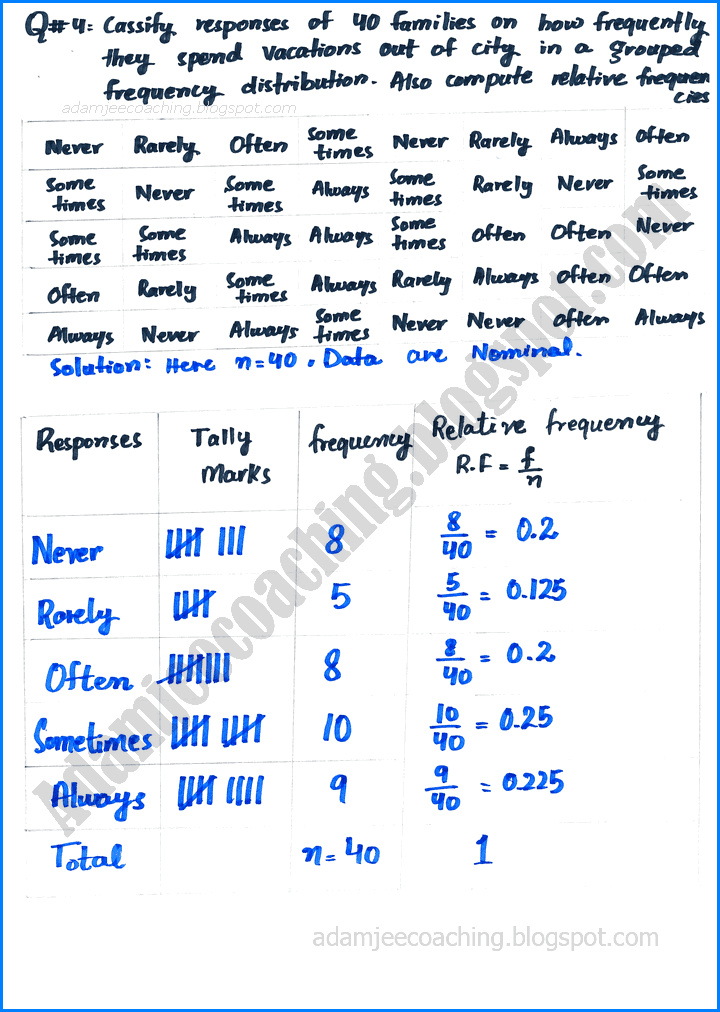 Q#4: Cassify responses of 40 families on how frequently
they spend vacations out of city in a grouped
frequency distribution. Also compute relative frequen
cies
adamjeecoaching.blogspot.com
Never Rarely Often Some times Never Rarely Always often
Some times Never Some times Always Some times Rarely Never Some times
Some times Some times Always Always Some times often Often Never
Often Rarely Some times Always Rarely Always often Often
Always Never Always Some times Never Never often Always
Solution: Here n=40. Data are Nominal.
Responses Tally Marks frequency Relative frequency R.F = f/n
Never 8 8/40 = 0.2
Rarely 5 5/40 = 0.125
Often 8 8/40 = 0.2
Sometimes 10 10/40 = 0.25
Always 9 9/40 = 0.225
Total n = 40 1
Adamjeecoaching.blogspot.com
adamjeecoaching.blogspot.com